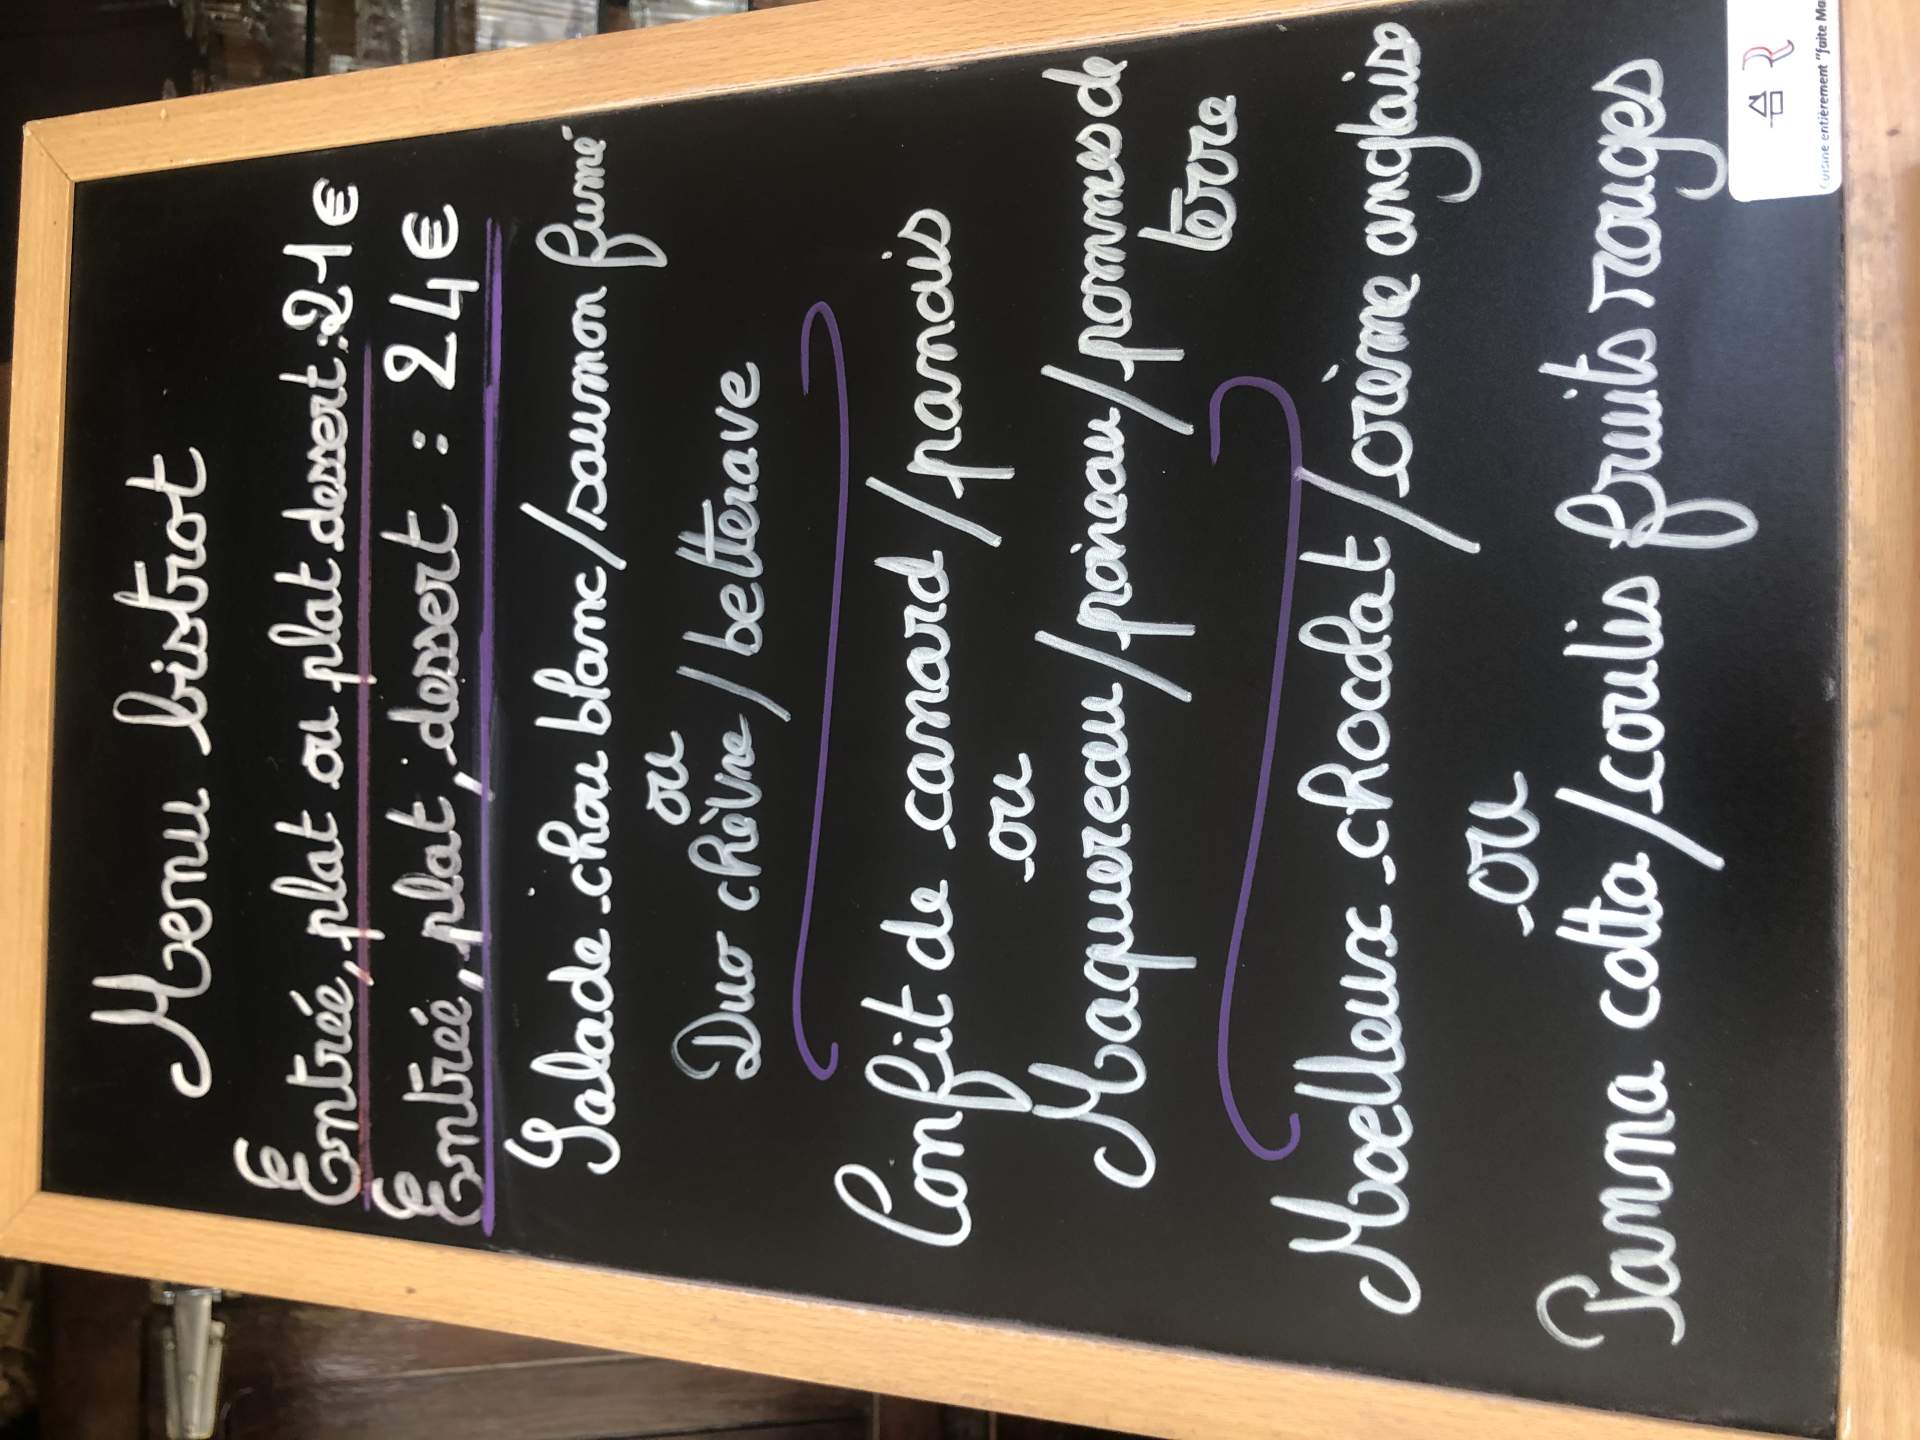 Menu bistrot
Entrée, plat ou plat dessert : 21€
Entrée, plat, dessert : 24€
Salade chou blanc/saumon fumé
ou
Duo chèvre/betterave
Confit de canard/panais
ou
Maquereau/poireau/pommes de
terre
Moelleux chocolat/crème anglaise
ou
Panna cotta/coulis fruits rouges
R
Cuisine entièrement "faite